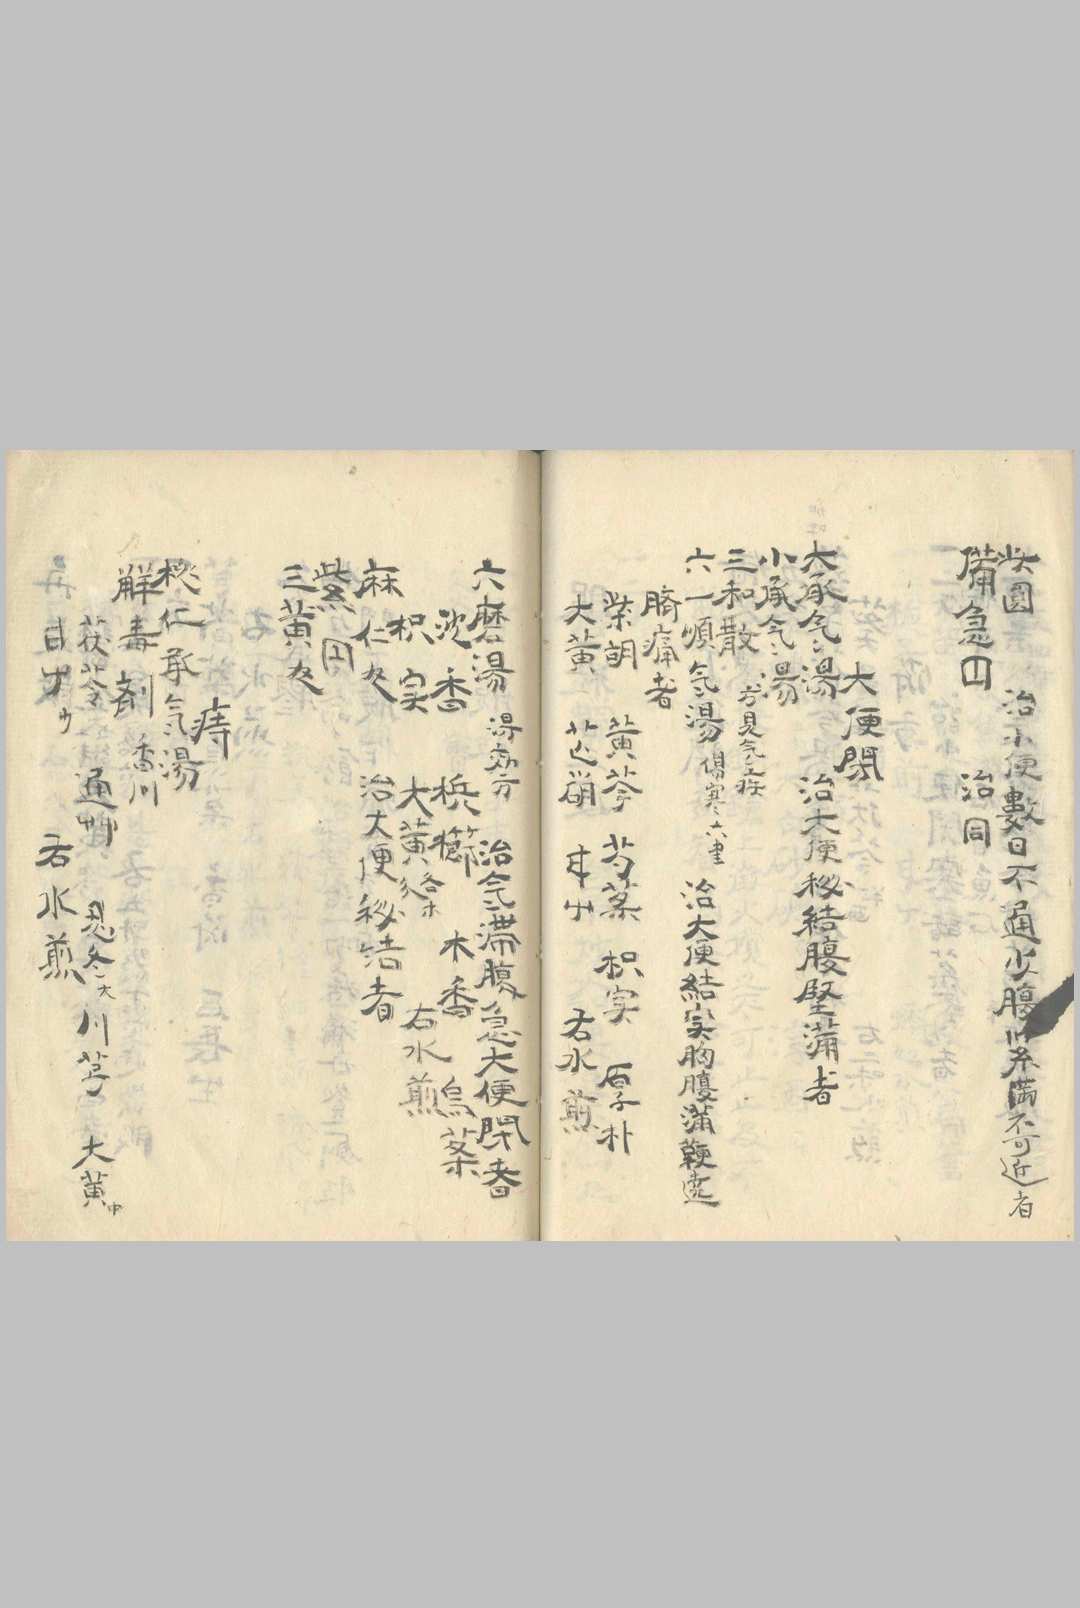 紫圓　治小便數日不通少腹㽲満不可近者
備急円　治同
大便閉
大承气湯　治大便秘結腹堅満者
小承气湯
三和散　方見气
六一順气湯　傷寒六書　治大便結実胸腹満鞕遶
臍痛者
柴胡　黄芩　芍薬　枳実　厚朴
大黄　芒硝　甘艸　右水煎
六磨湯　得効方　治气滞腹急大便閉者
沈香　梹榔　木香　烏薬
枳実　大黄各等　右水煎
麻仁丸　治大便秘結者
紫円
三黄丸
痔
桃仁承气湯
解毒剤　香川
茯苓　通艸　忍冬大　川芎　大黄中
甘艸少　右水煎